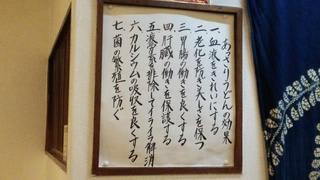 あさりうどんの効果
一.血液をきれいにする
二.老化を防ぎ美しさを保つ
三.胃腸の働きを良くする
四.肝臓の働きを保護する
五.酒の毒を排除してイライラ解消
六.カルシウムの吸収を良くする
七.菌の繁殖を防ぐ